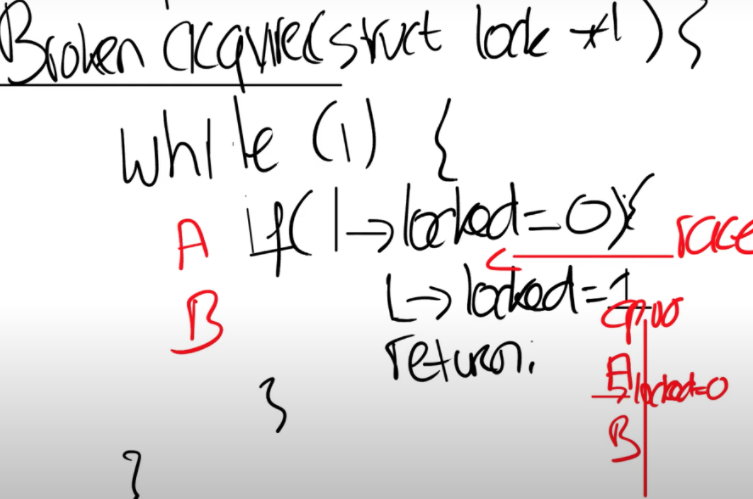 Broken acquire(struct lock *l) {
while (1) {
A if( l→locked=0){ race
B L→locked=1
CPU0
return;
A locked=0
}
B
}